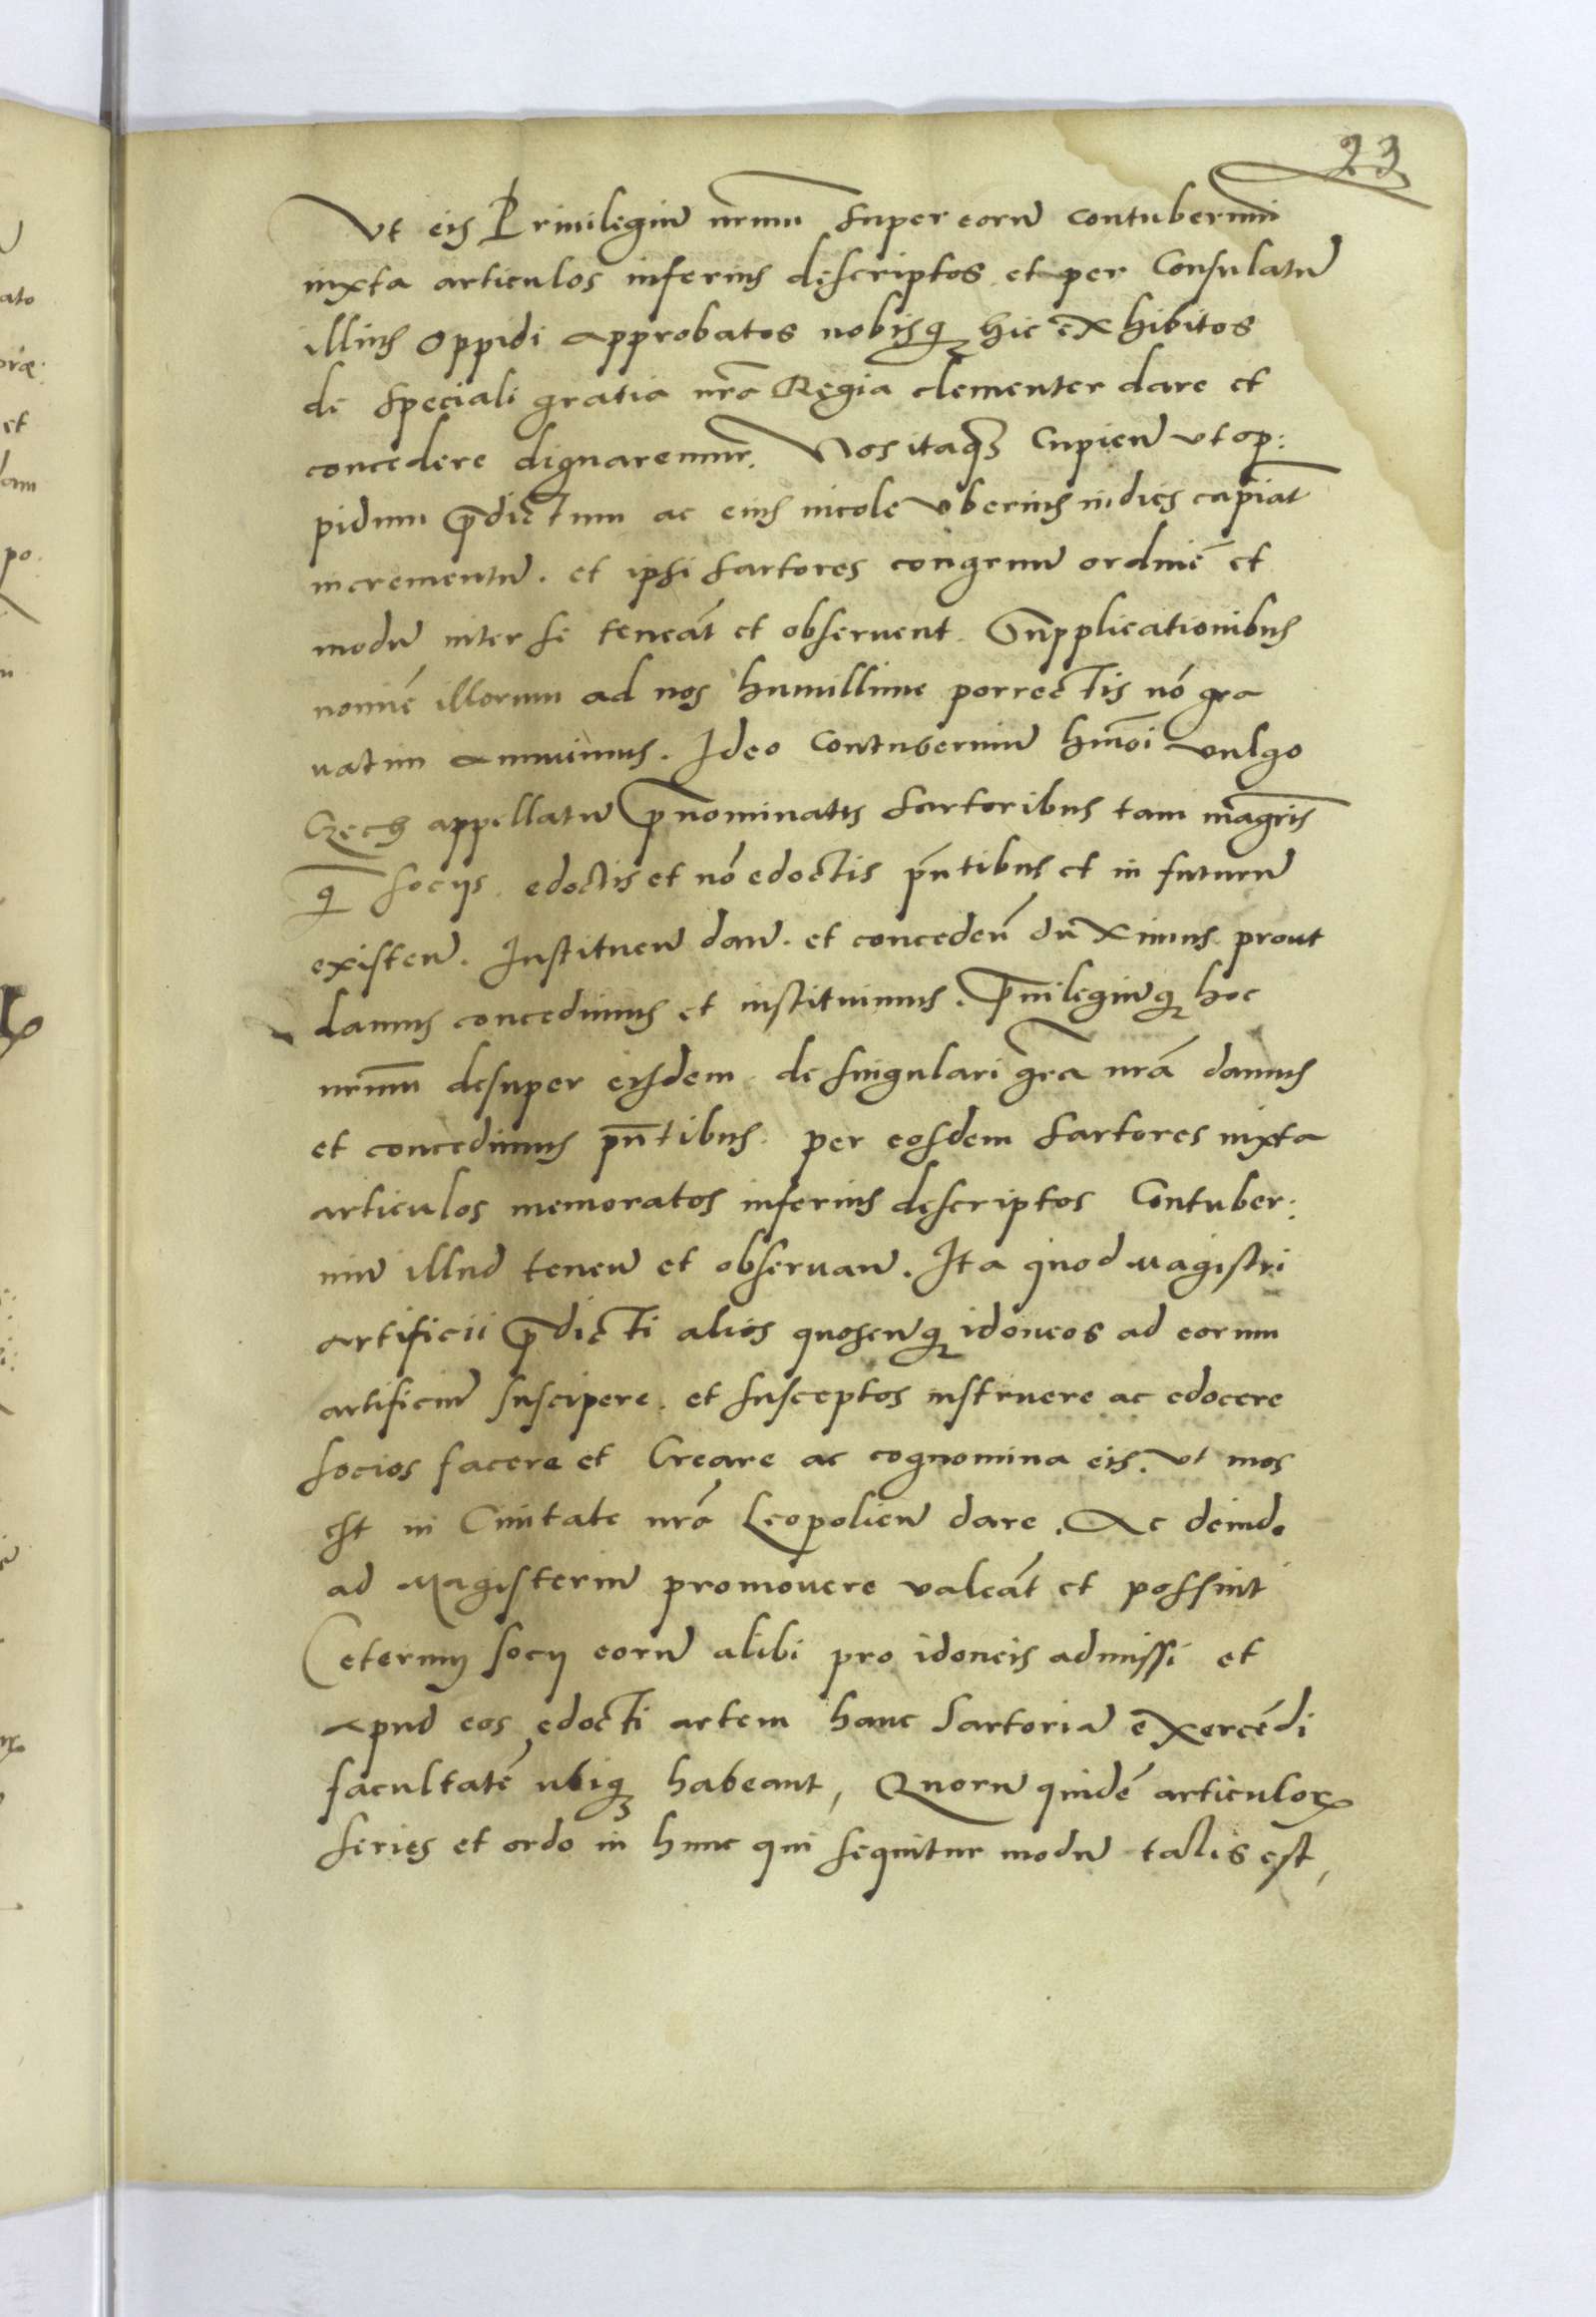 23
Vt eis Priuilegiū nrmm super eorū contubernium
iuxta articulos inferius descriptos et per Consulatū
illius Oppidi approbatos nobisq3 hic exhibitos
de speciali gratia nrã Regia clementer dare et
concedere dignaremur. Nos itaq3 Cupien̄ vt op:
pidum p̄dictum ac eius incole vberius indies capiāt
incrementū. et ipsi sartores congruū ordinē et
modū inter se teneāt et obseruent. Supplicationibus
nomīe illorum ad nos humillime porrectis nō gra
uatim annuimus. Ideo Contuberniū hm̄oi vulgo
Czech appellatū p̄nominatis sartoribus tam mag̃ris
q̄ socijs edoctis et nō edoctis pn̄tibus et in futurū
existen̄. Instituen̄ dan̄. et conceden̄ duximus prout
damus concedimus et instituimus. Priuilegiūq3 hoc
nr̄mm desuper eisdem de singulari grã nrã damus
et concedimus pn̄tibus per eosdem sartores iuxta
articulos memoratos inferius descriptos Contuber:
niū illud tenen̄ et obseruan̄. Ita quod magistri
artificii p̄dicti alios quoscūq3 idoneos ad eorum
artificiū suscipere. et susceptos instruere ac edocere
socios facere et Creare ac cognomina eis. vt mos
est in Ciuitate nrã Leopolien̄ dare. Ac deinde
ad Magisteriū promouere valeāt et possint
Ceterum socij eorū alibi pro idoneis admissi et
apud eos edocti artem hanc Sartoriā exercēdi
facultatē ubiq3 habeant, Quorū quidē articulorꝝ
series et ordo in hunc qui sequitur modū talis est,